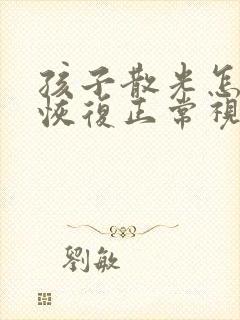 孩子散光怎
恢復正常視
劉敏